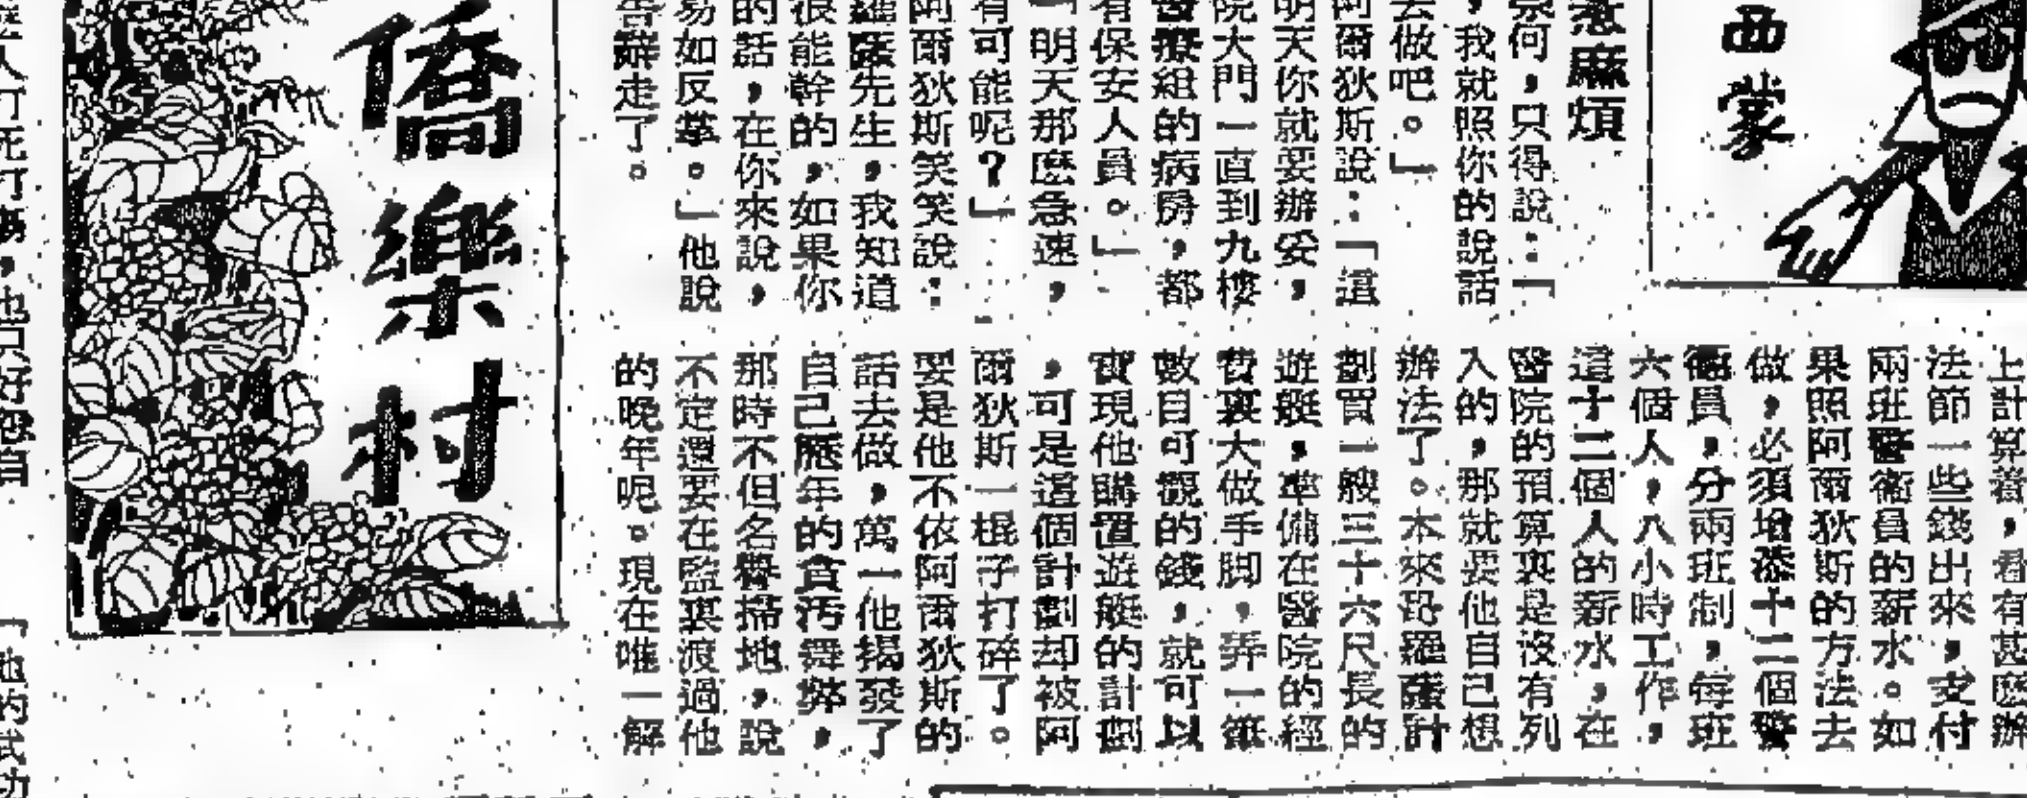 西蒙
惹麻煩
奈何,只得說:「
,我就照你的說話
去做吧。」
阿爾狄斯說:「這
明天你就要辦妥,
院大門一直到九樓
醫療組的病房,都
有保安人員。」
「明天那麽急速,
有可能呢?」
阿爾狄斯笑笑說:
羅薩先生,我知道
很能幹的,如果你
的話,在你來說,
易如反掌。」他說
告辭走了。
上計算着,看有甚麽辦
法節一些錢出來,支付
兩班警衞員的薪水。如
果照阿爾狄斯的方法去
做,必須增添十二個警
衞員,分兩班制,每班
六個人,八小時工作,
這十二個人的薪水,在
醫院的預算裏是沒有列
入的,那就要他自己想
辦法了。本來路羅薩計
劃買一艘三十六尺長的
遊艇,準備在醫院的經
費裏大做手脚,弄一筆
數目可觀的錢,就可以
實現他購置遊艇的計劃
,可是這個計劃却被阿
爾狄斯一棍子打碎了。
要是他不依阿爾狄斯的
話去做,萬一他揭發了
自己歷年的貪污舞弊,
那時不但名譽掃地,說
不定還要在監裏渡過他
的晚年呢。現在唯一解
僑樂村
,也只好怨自
「他的武功